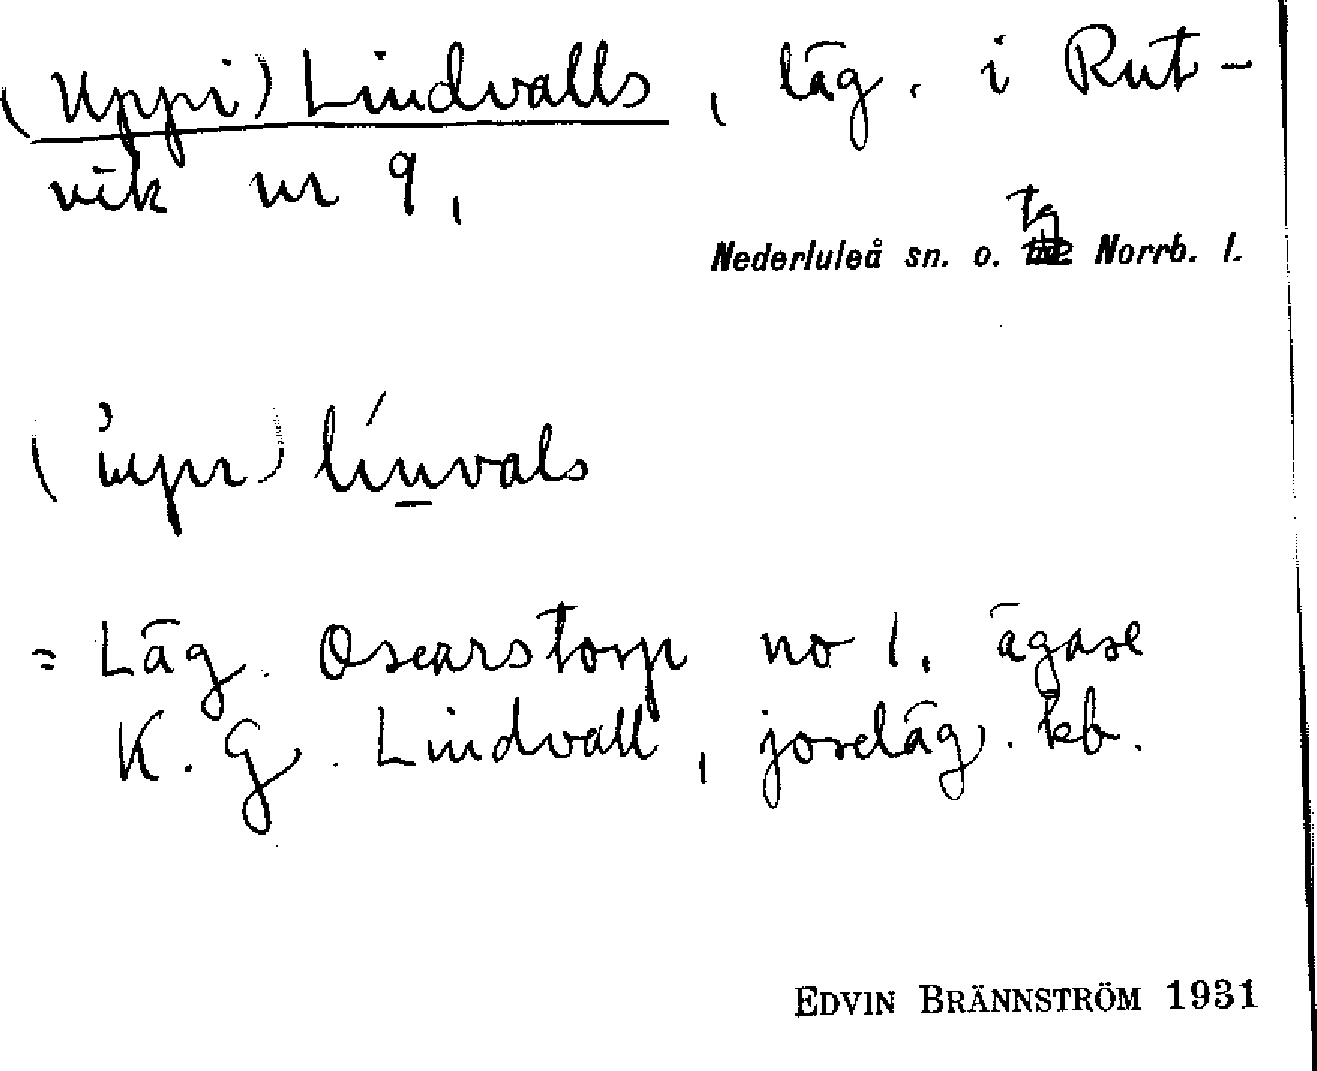 (Uppi) Lindvalls, läg. i Rut-
vik nr 9,
Nederluleå sn. o. tg Norrb. l.
(ùpı) línvals
= Läg. Oscarstorp no 1. ägare
K. G. Lindvall, jordläg. kb.
EDVIN BRÄNNSTRÖM 1931